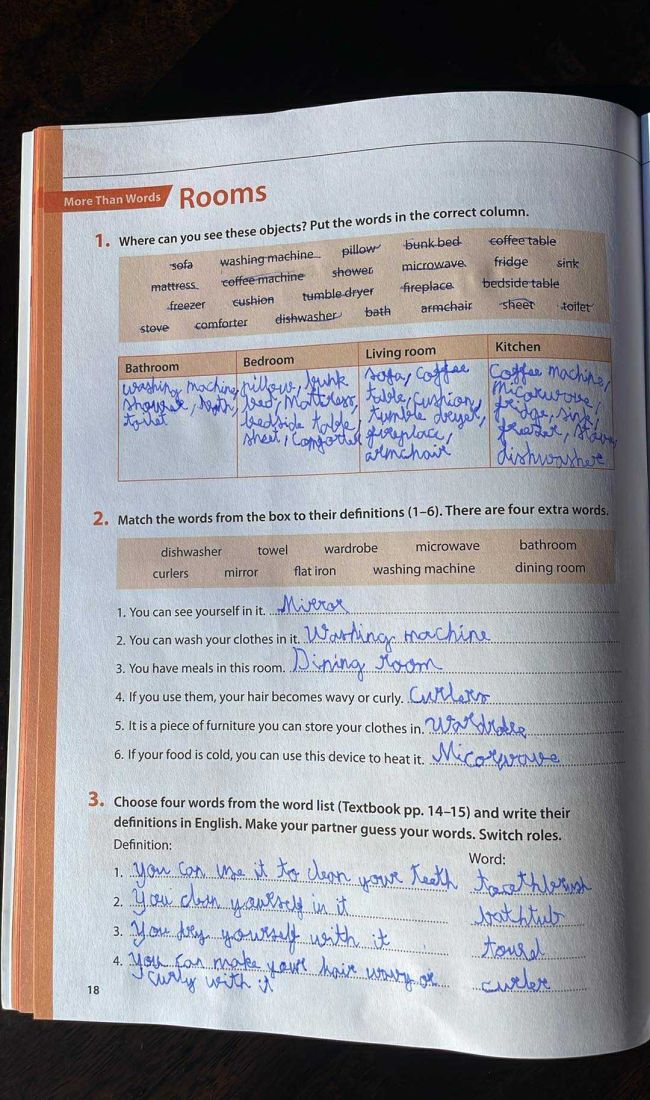 More Than Words Rooms
1. Where can you see these objects? Put the words in the correct column.
sofa washing machine pillow bunk bed coffee table
mattress coffee machine shower microwave fridge sink
freezer cushion tumble dryer fireplace bedside table
stove comforter dishwasher bath armchair sheet toilet
Bathroom Bedroom Living room Kitchen
washing machine, pillow, bunk sofa, coffee Coffee machine,
shower, bath, bed, mattress, table, cushion, Micorwove,
toilet bedside table, tumble dreyer, fridge, sink,
sheet, Comforter fireplace, freezer,
armchair dishwasher
2. Match the words from the box to their definitions (1–6). There are four extra words.
dishwasher towel wardrobe microwave bathroom
curlers mirror flat iron washing machine dining room
1. You can see yourself in it. Mirror
2. You can wash your clothes in it. Washing machine
3. You have meals in this room. Dining room
4. If you use them, your hair becomes wavy or curly. Curlers
5. It is a piece of furniture you can store your clothes in. Wardrobe
6. If your food is cold, you can use this device to heat it. Micorwave
3. Choose four words from the word list (Textbook pp. 14–15) and write their
definitions in English. Make your partner guess your words. Switch roles.
Definition: Word:
1. you can use it to clean your teeth
2. you clean yourself in it bathtub
3. you dry yourself with it
4. you can make your hair wavy or curler
curly with it
18